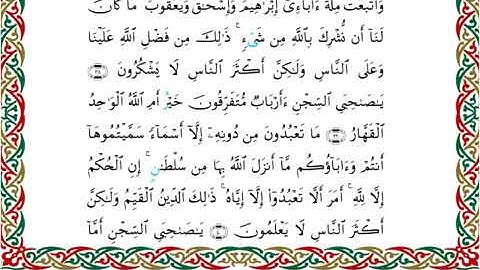 وَٱتَّبَعْتُ مِلَّةَ ءَابَآءِىٓ إِبْرَٰهِيمَ وَإِسْحَٰقَ وَيَعْقُوبَ ۚ مَا كَانَ
لَنَآ أَن نُّشْرِكَ بِٱللَّهِ مِن شَىْءٍ ۚ ذَٰلِكَ مِن فَضْلِ ٱللَّهِ عَلَيْنَا
وَعَلَى ٱلنَّاسِ وَلَٰكِنَّ أَكْثَرَ ٱلنَّاسِ لَا يَشْكُرُونَ ﴿٣٨﴾
يَٰصَىٰحِبَىِ ٱلسِّجْنِ ءَأَرْبَابٌ مُّتَفَرِّقُونَ خَيْرٌ أَمِ ٱللَّهُ ٱلْوَٰحِدُ
ٱلْقَهَّارُ ﴿٣٩﴾ مَا تَعْبُدُونَ مِن دُونِهِۦٓ إِلَّآ أَسْمَآءً سَمَّيْتُمُوهَآ
أَنتُمْ وَءَابَآؤُكُم مَّآ أَنزَلَ ٱللَّهُ بِهَا مِن سُلْطَٰنٍ ۚ إِنِ ٱلْحُكْمُ
إِلَّا لِلَّهِ ۚ أَمَرَ أَلَّا تَعْبُدُوٓا۟ إِلَّآ إِيَّاهُ ۚ ذَٰلِكَ ٱلدِّينُ ٱلْقَيِّمُ وَلَٰكِنَّ
أَكْثَرَ ٱلنَّاسِ لَا يَعْلَمُونَ ﴿٤٠﴾ يَٰصَىٰحِبَىِ ٱلسِّجْنِ أَمَّآ